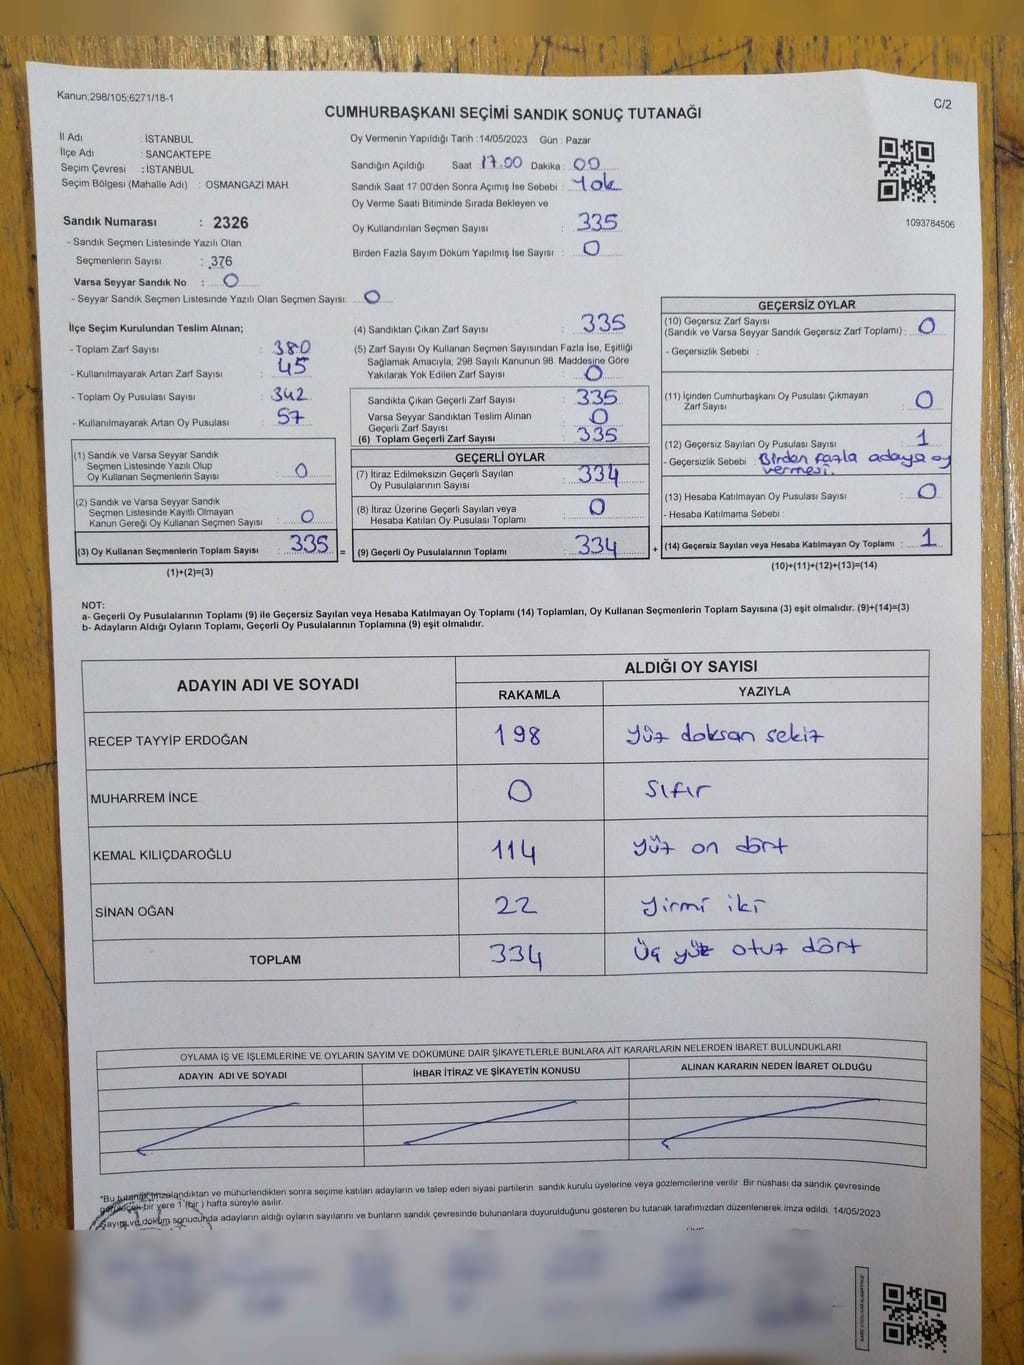 Kanun;298/105;6271/18-1
C/2
CUMHURBAŞKANI SEÇİMİ SANDIK SONUÇ TUTANAĞI
İl Adı : İSTANBUL
İlçe Adı : SANCAKTEPE
Seçim Çevresi : İSTANBUL
Seçim Bölgesi (Mahalle Adı) : OSMANGAZİ MAH.
Sandık Numarası : 2326
- Sandık Seçmen Listesinde Yazılı Olan
Seçmenlerin Sayısı : 376
Varsa Seyyar Sandık No : 0
- Seyyar Sandık Seçmen Listesinde Yazılı Olan Seçmen Sayısı: 0
Oy Vermenin Yapıldığı Tarih : 14/05/2023 Gün : Pazar
Sandığın Açıldığı Saat 17.00 Dakika : 00
Sandık Saat 17:00'den Sonra Açımış İse Sebebi : Yok
Oy Verme Saati Bitiminde Sırada Bekleyen ve
Oy Kullandırılan Seçmen Sayısı : 335
Birden Fazla Sayım Döküm Yapılmış İse Sayısı : 0
1093784506
İlçe Seçim Kurulundan Teslim Alınan;
- Toplam Zarf Sayısı : 380
- Kullanılmayarak Artan Zarf Sayısı : 45
- Toplam Oy Pusulası Sayısı : 342
- Kullanılmayarak Artan Oy Pusulası : 57
(1) Sandık ve Varsa Seyyar Sandık
Seçmen Listesinde Yazılı Olup
Oy Kullanan Seçmenlerin Sayısı : 0
(2) Sandık ve Varsa Seyyar Sandık
Seçmen Listesinde Kayıtlı Olmayan
Kanun Gereği Oy Kullanan Seçmen Sayısı : 0
(3) Oy Kullanan Seçmenlerin Toplam Sayısı : 335 =
(1)+(2)=(3)
(4) Sandıktan Çıkan Zarf Sayısı : 335
(5) Zarf Sayısı Oy Kullanan Seçmen Sayısından Fazla İse, Eşitliği
Sağlamak Amacıyla, 298 Sayılı Kanunun 98. Maddesine Göre
Yakılarak Yok Edilen Zarf Sayısı : 0
Sandıkta Çıkan Geçerli Zarf Sayısı : 335
Varsa Seyyar Sandıktan Teslim Alınan
Geçerli Zarf Sayısı : 0
(6) Toplam Geçerli Zarf Sayısı : 335
GEÇERLİ OYLAR
(7) İtiraz Edilmeksizin Geçerli Sayılan
Oy Pusulalarının Sayısı : 334
(8) İtiraz Üzerine Geçerli Sayılan veya
Hesaba Katılan Oy Pusulası Toplamı : 0
(9) Geçerli Oy Pusulalarının Toplamı : 334 +
GEÇERSİZ OYLAR
(10) Geçersiz Zarf Sayısı
(Sandık ve Varsa Seyyar Sandık Geçersiz Zarf Toplamı) : 0
- Geçersizlik Sebebi :
(11) İçinden Cumhurbaşkanı Oy Pusulası Çıkmayan
Zarf Sayısı : 0
(12) Geçersiz Sayılan Oy Pusulası Sayısı : 1
- Geçersizlik Sebebi : Birden fazla adaya oy
vermesi.
(13) Hesaba Katılmayan Oy Pusulası Sayısı : 0
- Hesaba Katılmama Sebebi :
(14) Geçersiz Sayılan veya Hesaba Katılmayan Oy Toplamı : 1
(10)+(11)+(12)+(13)=(14)
NOT:
a- Geçerli Oy Pusulalarının Toplamı (9) ile Geçersiz Sayılan veya Hesaba Katılmayan Oy Toplamı (14) Toplamları, Oy Kullanan Seçmenlerin Toplam Sayısına (3) eşit olmalıdır. (9)+(14)=(3)
b- Adayların Aldığı Oyların Toplamı, Geçerli Oy Pusulalarının Toplamına (9) eşit olmalıdır.
ADAYIN ADI VE SOYADI
ALDIĞI OY SAYISI
RAKAMLA YAZIYLA
RECEP TAYYİP ERDOĞAN 198 Yüz doksan sekiz
MUHARREM İNCE 0 Sıfır
KEMAL KILIÇDAROĞLU 114 Yüz on dört
SİNAN OĞAN 22 Yirmi iki
TOPLAM 334 Üç yüz otuz dört
OYLAMA İŞ VE İŞLEMLERİNE VE OYLARIN SAYIM VE DÖKÜMÜNE DAİR ŞİKAYETLERLE BUNLARA AİT KARARLARIN NELERDEN İBARET BULUNDUKLARI
ADAYIN ADI VE SOYADI İHBAR İTİRAZ VE ŞİKAYETİN KONUSU ALINAN KARARIN NEDEN İBARET OLDUĞU
*Bu tutanak imzalandıktan ve mühürlendikten sonra seçime katılan adayların ve talep eden siyasi partilerin sandık kurulu üyelerine veya gözlemcilerine verilir. Bir nüshası da sandık çevresinde
görülecek bir yere 1 (bir) hafta süreyle asılır.
Sayım ve döküm sonucunda adayların aldığı oyların sayılarını ve bunların sandık çevresinde bulunanlara duyurulduğunu gösteren bu tutanak tarafımızdan düzenlenerek imza edildi. 14/05/2023